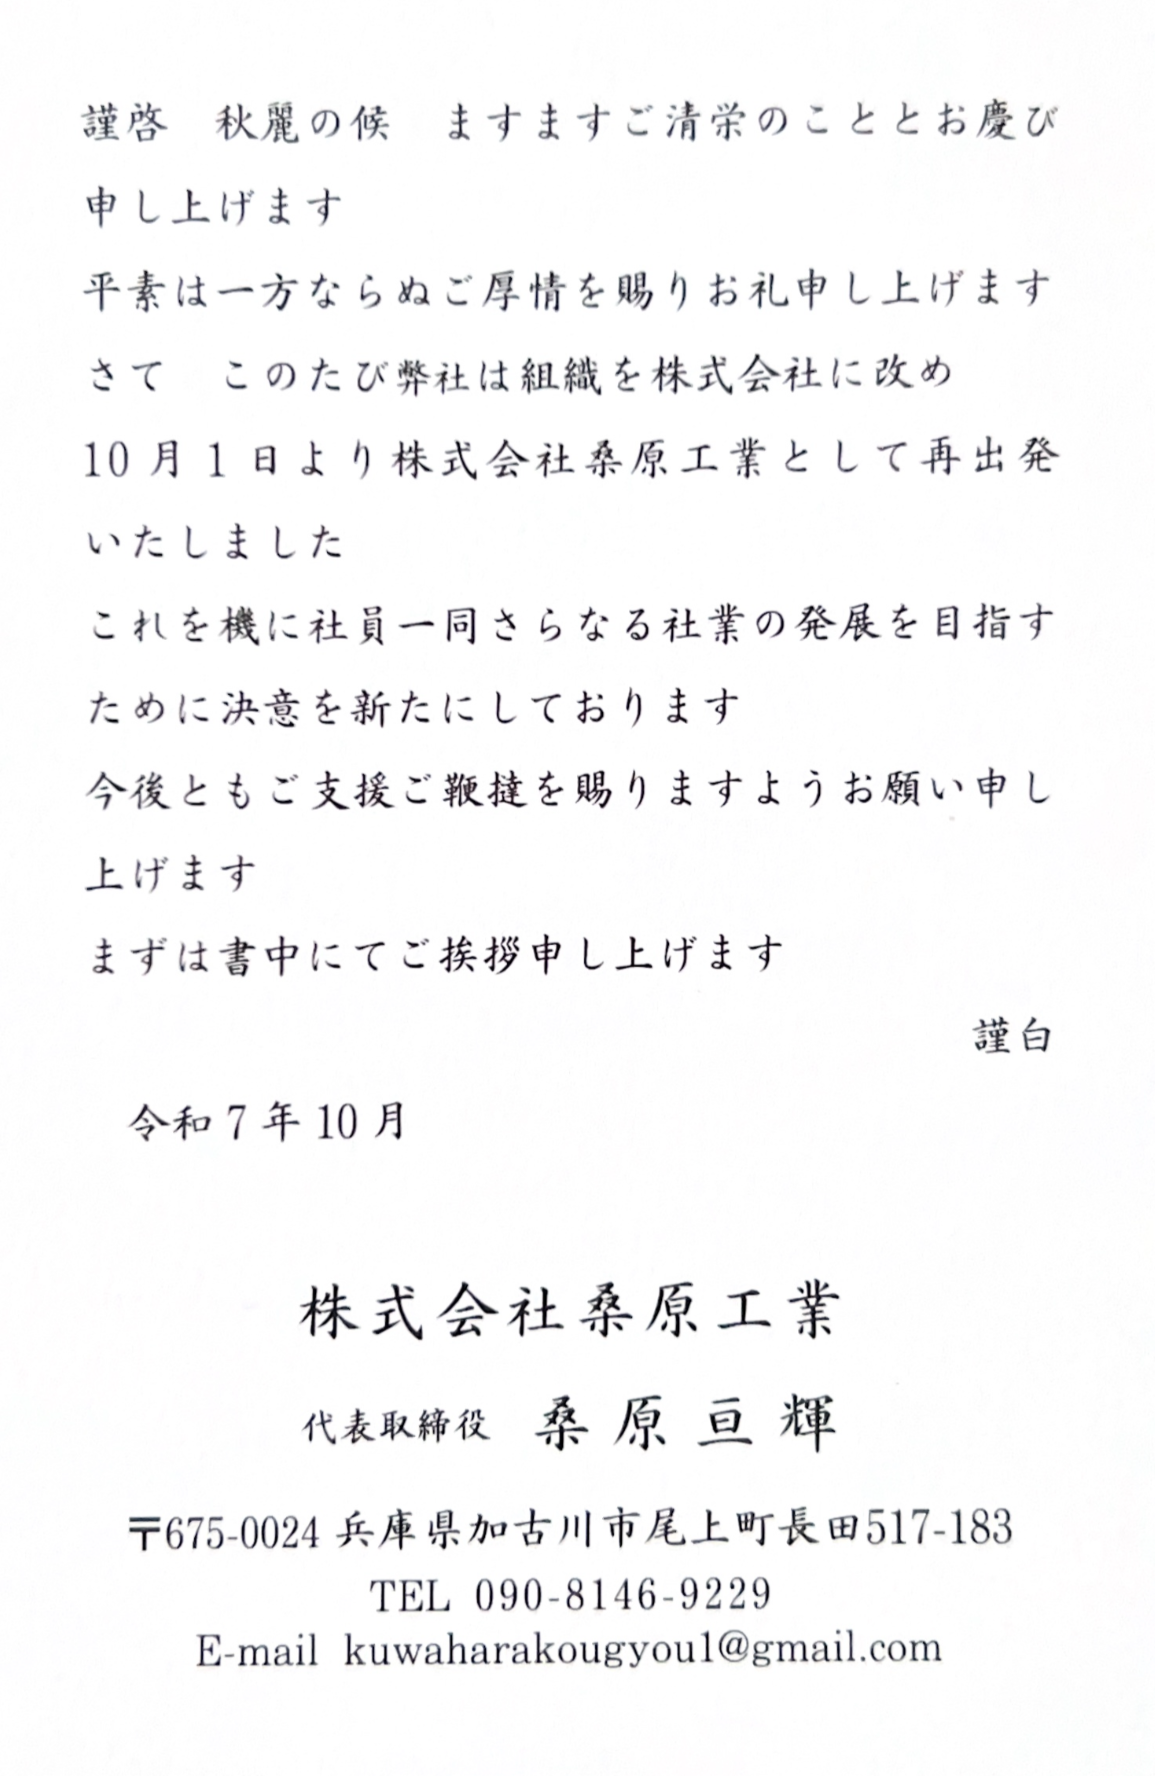 謹啓　秋麗の候　ますますご清栄のこととお慶び
申し上げます
平素は一方ならぬご厚情を賜りお礼申し上げます
さて　このたび弊社は組織を株式会社に改め
10月1日より株式会社桑原工業として再出発
いたしました
これを機に社員一同さらなる社業の発展を目指す
ために決意を新たにしております
今後ともご支援ご鞭撻を賜りますようお願い申し
上げます
まずは書中にてご挨拶申し上げます
謹白
令和7年10月
株式会社桑原工業
代表取締役　桑原亘輝
〒675-0024 兵庫県加古川市尾上町長田517-183
TEL 090-8146-9229
E-mail kuwaharakougyou1@gmail.com